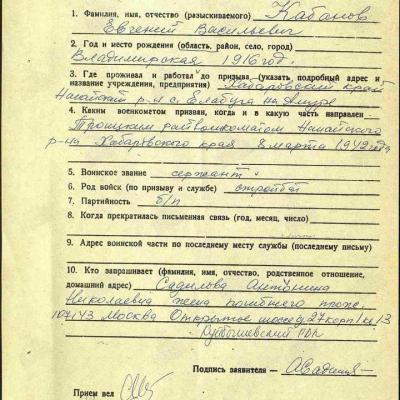 1. Фамилия, имя, отчество (разыскиваемого) Кабанов
Евгений Васильевич
2. Год и место рождения (область, район, село, город)
Владимирская 1916 год.
3. Где проживал и работал до призыва (указать подробный адрес и
название учреждения, предприятия) Хабаровский край
Нанайский р-н с. Елабуга на Амуре
4. Каким военкоматом призван, когда и в какую часть направлен
Троицким райвоенкоматом Нанайского
р-на Хабаровского края 8 марта 1942 года
5. Воинское звание сержант
6. Род войск (по призыву и службе) стройбат
7. Партийность б/п
8. Когда прекратилась письменная связь (год, месяц, число)
9. Адрес воинской части по последнему месту службы (последнему письму)
10. Кто запрашивает (фамилия, имя, отчество, родственное отношение,
домашний адрес) Садилова Антонина
Николаевна жена погибшего прож.
107143 Москва Открытое шоссе д 27 корп 1 кв 13
Куйбышевский РВК
Подпись заявителя —
Прием вел